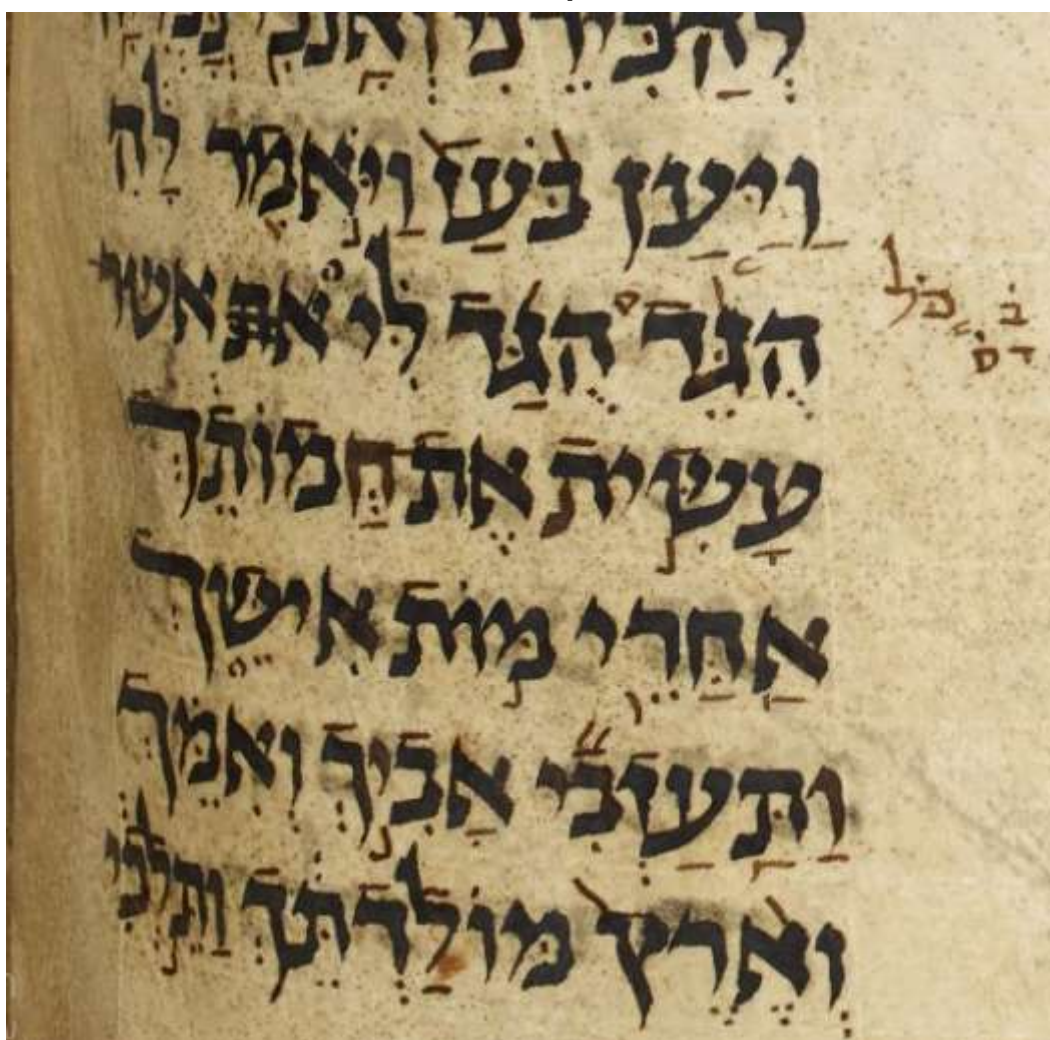 לְהַכִּירֵנִי וְאָנֹכִי
וַיַּעַן בֹּעַז וַיֹּאמֶר לָהּ
הֻגֵּד הֻגַּד לִי את אשר
כל
עָשִׂית אֶת חֲמוֹתֵךְ
אַחֲרֵי מוֹת אִישֵׁךְ
וַתַּעַזְבִי אָבִיךְ וְאִמֵּךְ
וְאֶרֶץ מוֹלַדְתֵּךְ וַתֵּלְכִי